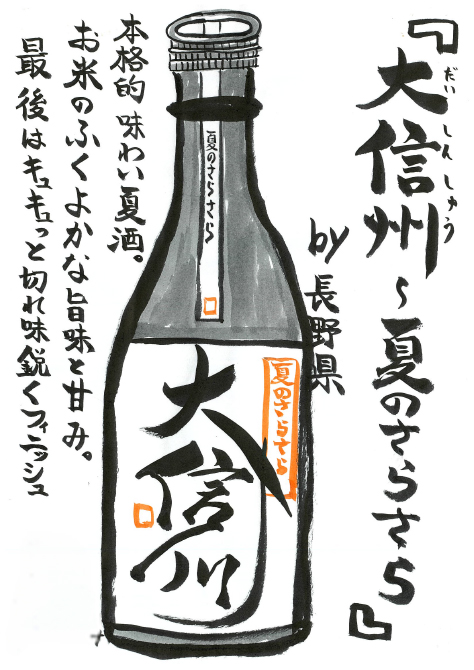 『大信州～夏のさらさら』
だいしんしゅう
by 長野県
夏のさらさら
夏のさらさら
大信州
本格的 味わい夏酒。
お米のふくよかな旨味と甘み。
最後はキュキュっと切れ味鋭くフィニッシュ